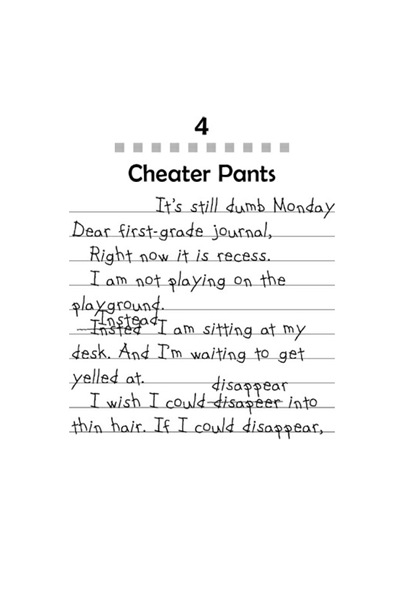 4
Cheater Pants
It's still dumb Monday
Dear first-grade journal,
Right now it is recess.
I am not playing on the
playground.
Instead
Insted I am sitting at my
desk. And I'm waiting to get
yelled at.
disappear
I wish I could disapeer into
thin hair. If I could disappear,